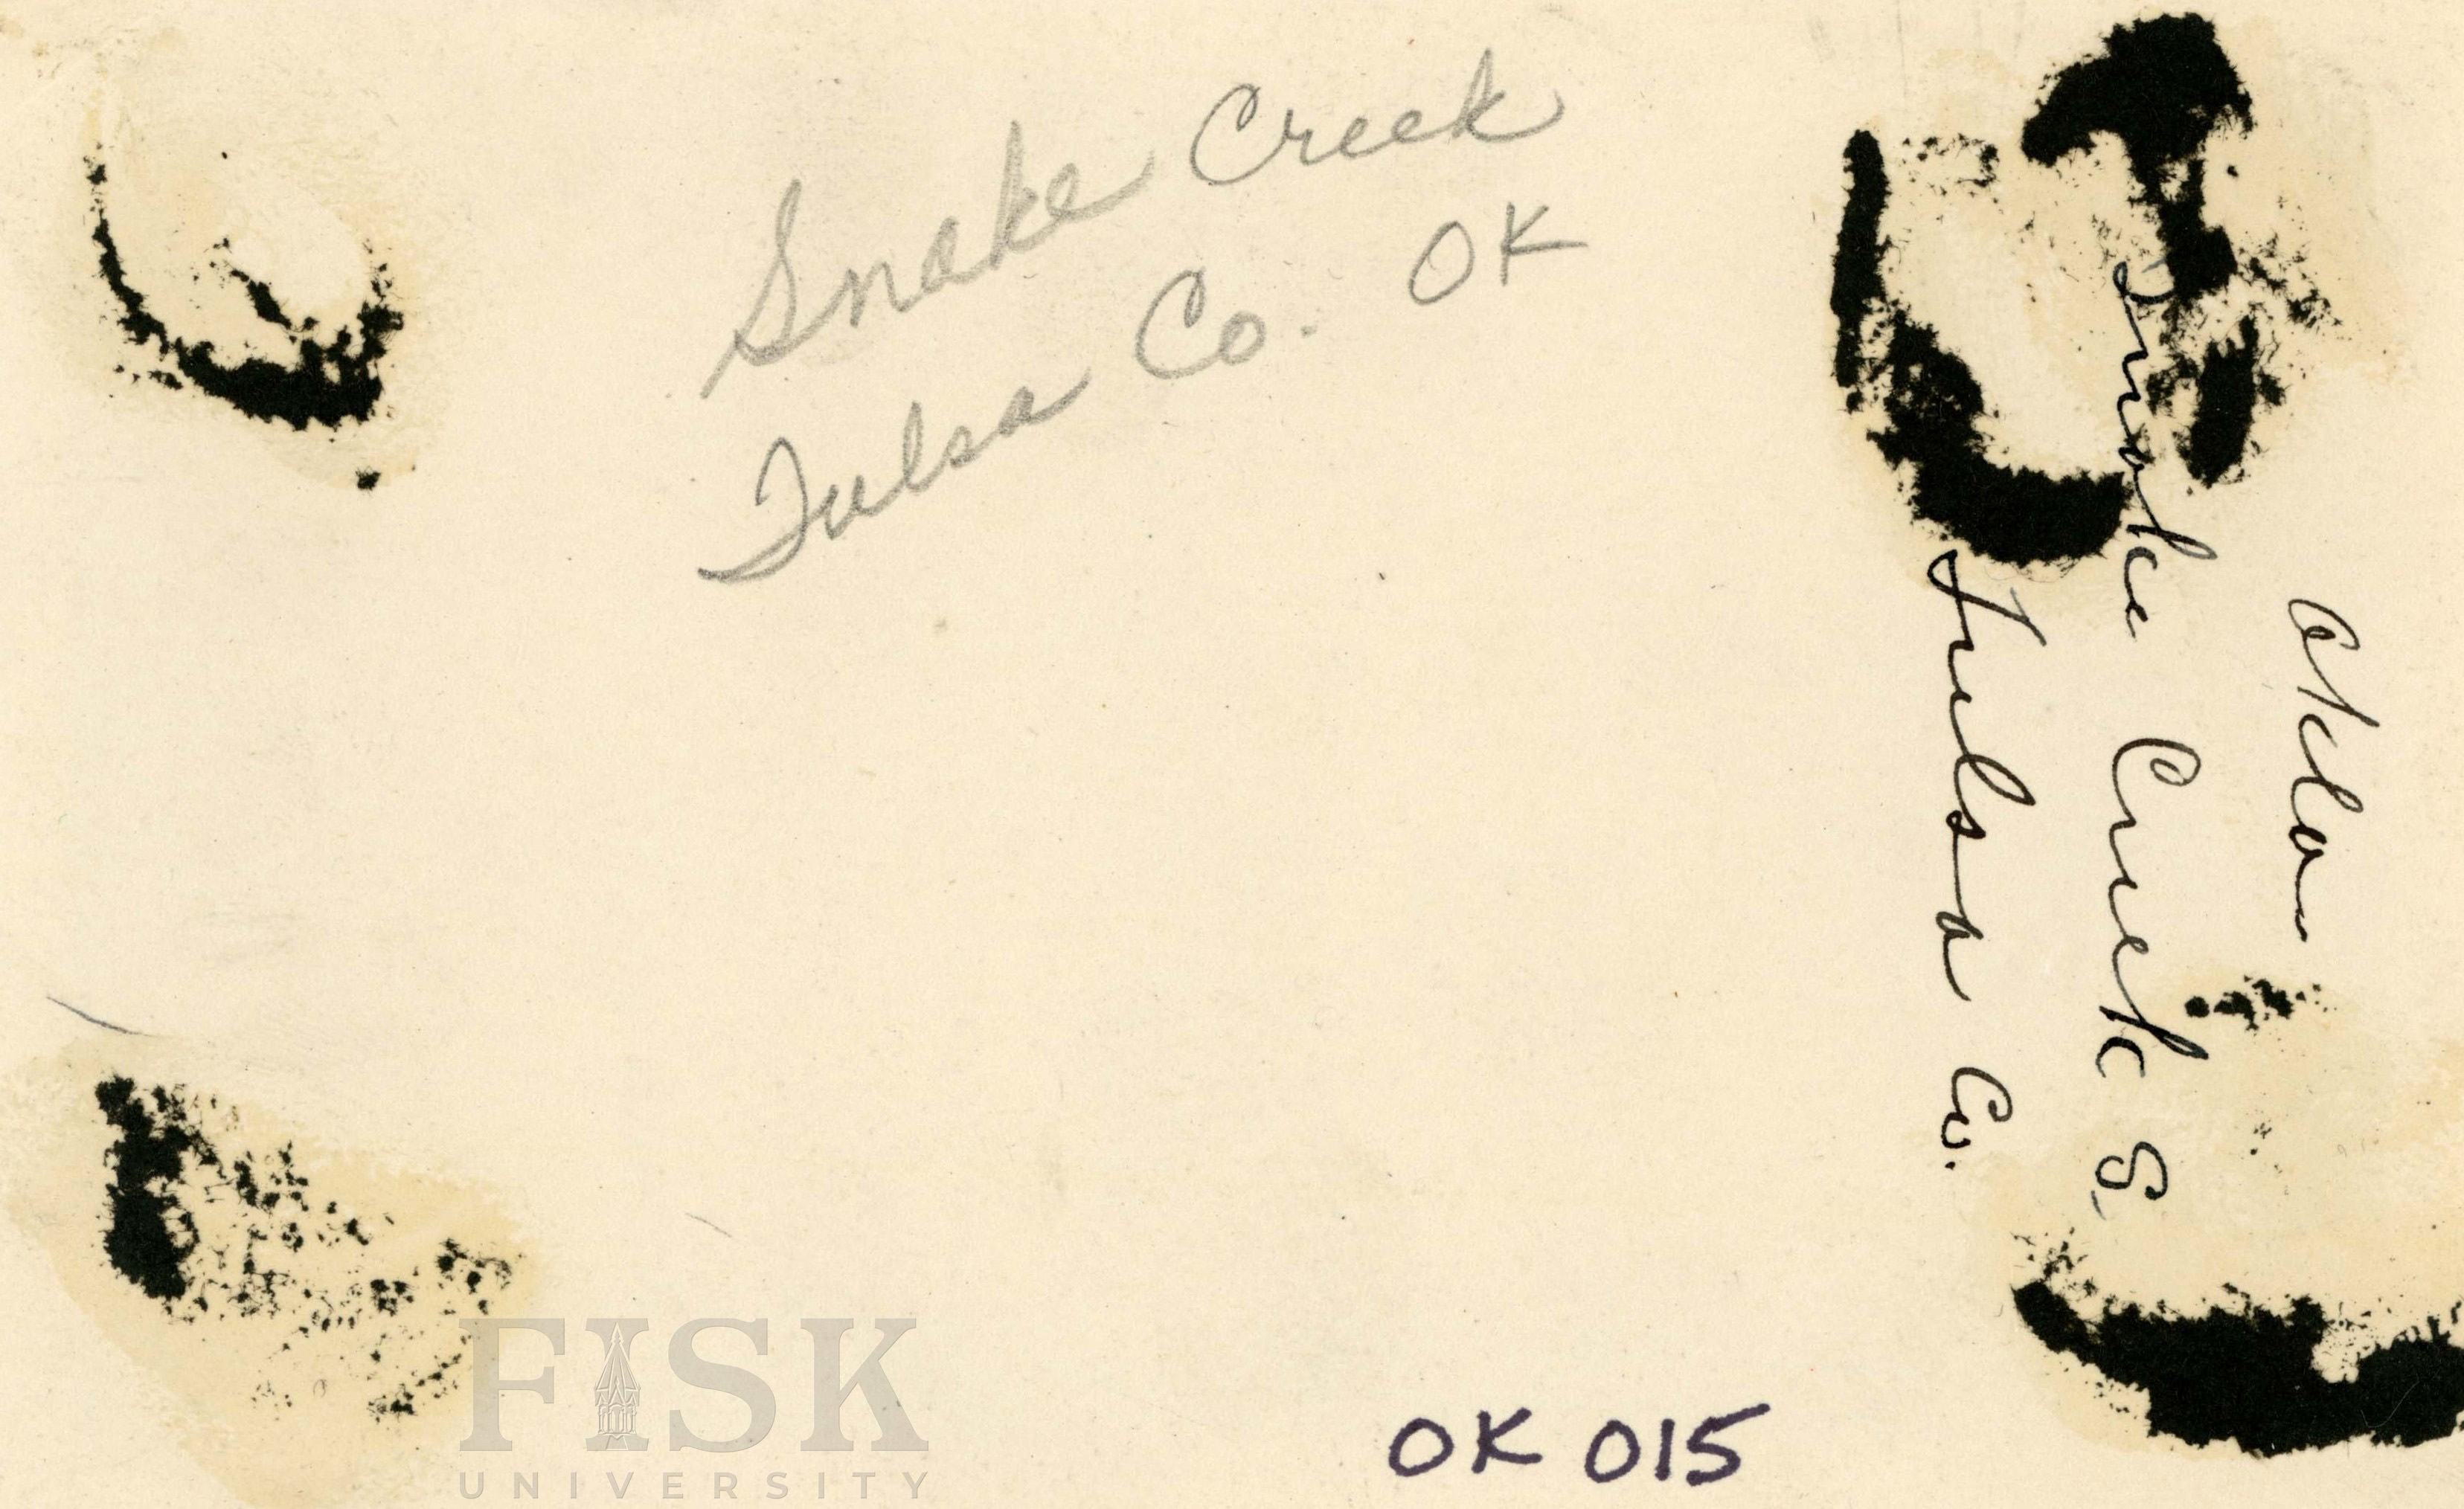 Snake Creek
Tulsa Co. OK
Okla
Snake Creek S.
Tulsa Co.
OK 015
FISK
UNIVERSITY